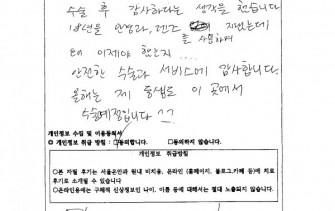 수술 후 감사하다는 생각을 했습니다
18년을 안경과, 렌즈를 사용하며 지냈는데
왜 이제야 했는지....
안전한 수술과 서비스에 감사합니다
올해는 제 동생도 이 곳에서
수술예정입니다 ^^
개인정보 수집 및 이용동의서
◎ 개인정보 취급방침 : □동의합니다. □동의하지 않습니다.
개인정보 취급방침
○본 자필 후기는 서울온안과 원내 비치용, 온라인 (홈페이지, 블로그,카페 등)에 치료
후기로 소개될 수 있습니다
○온라인용에는 구체적 신상정보인 나이, 이름 등에 대해서는 절대 노출되지 않습니다.